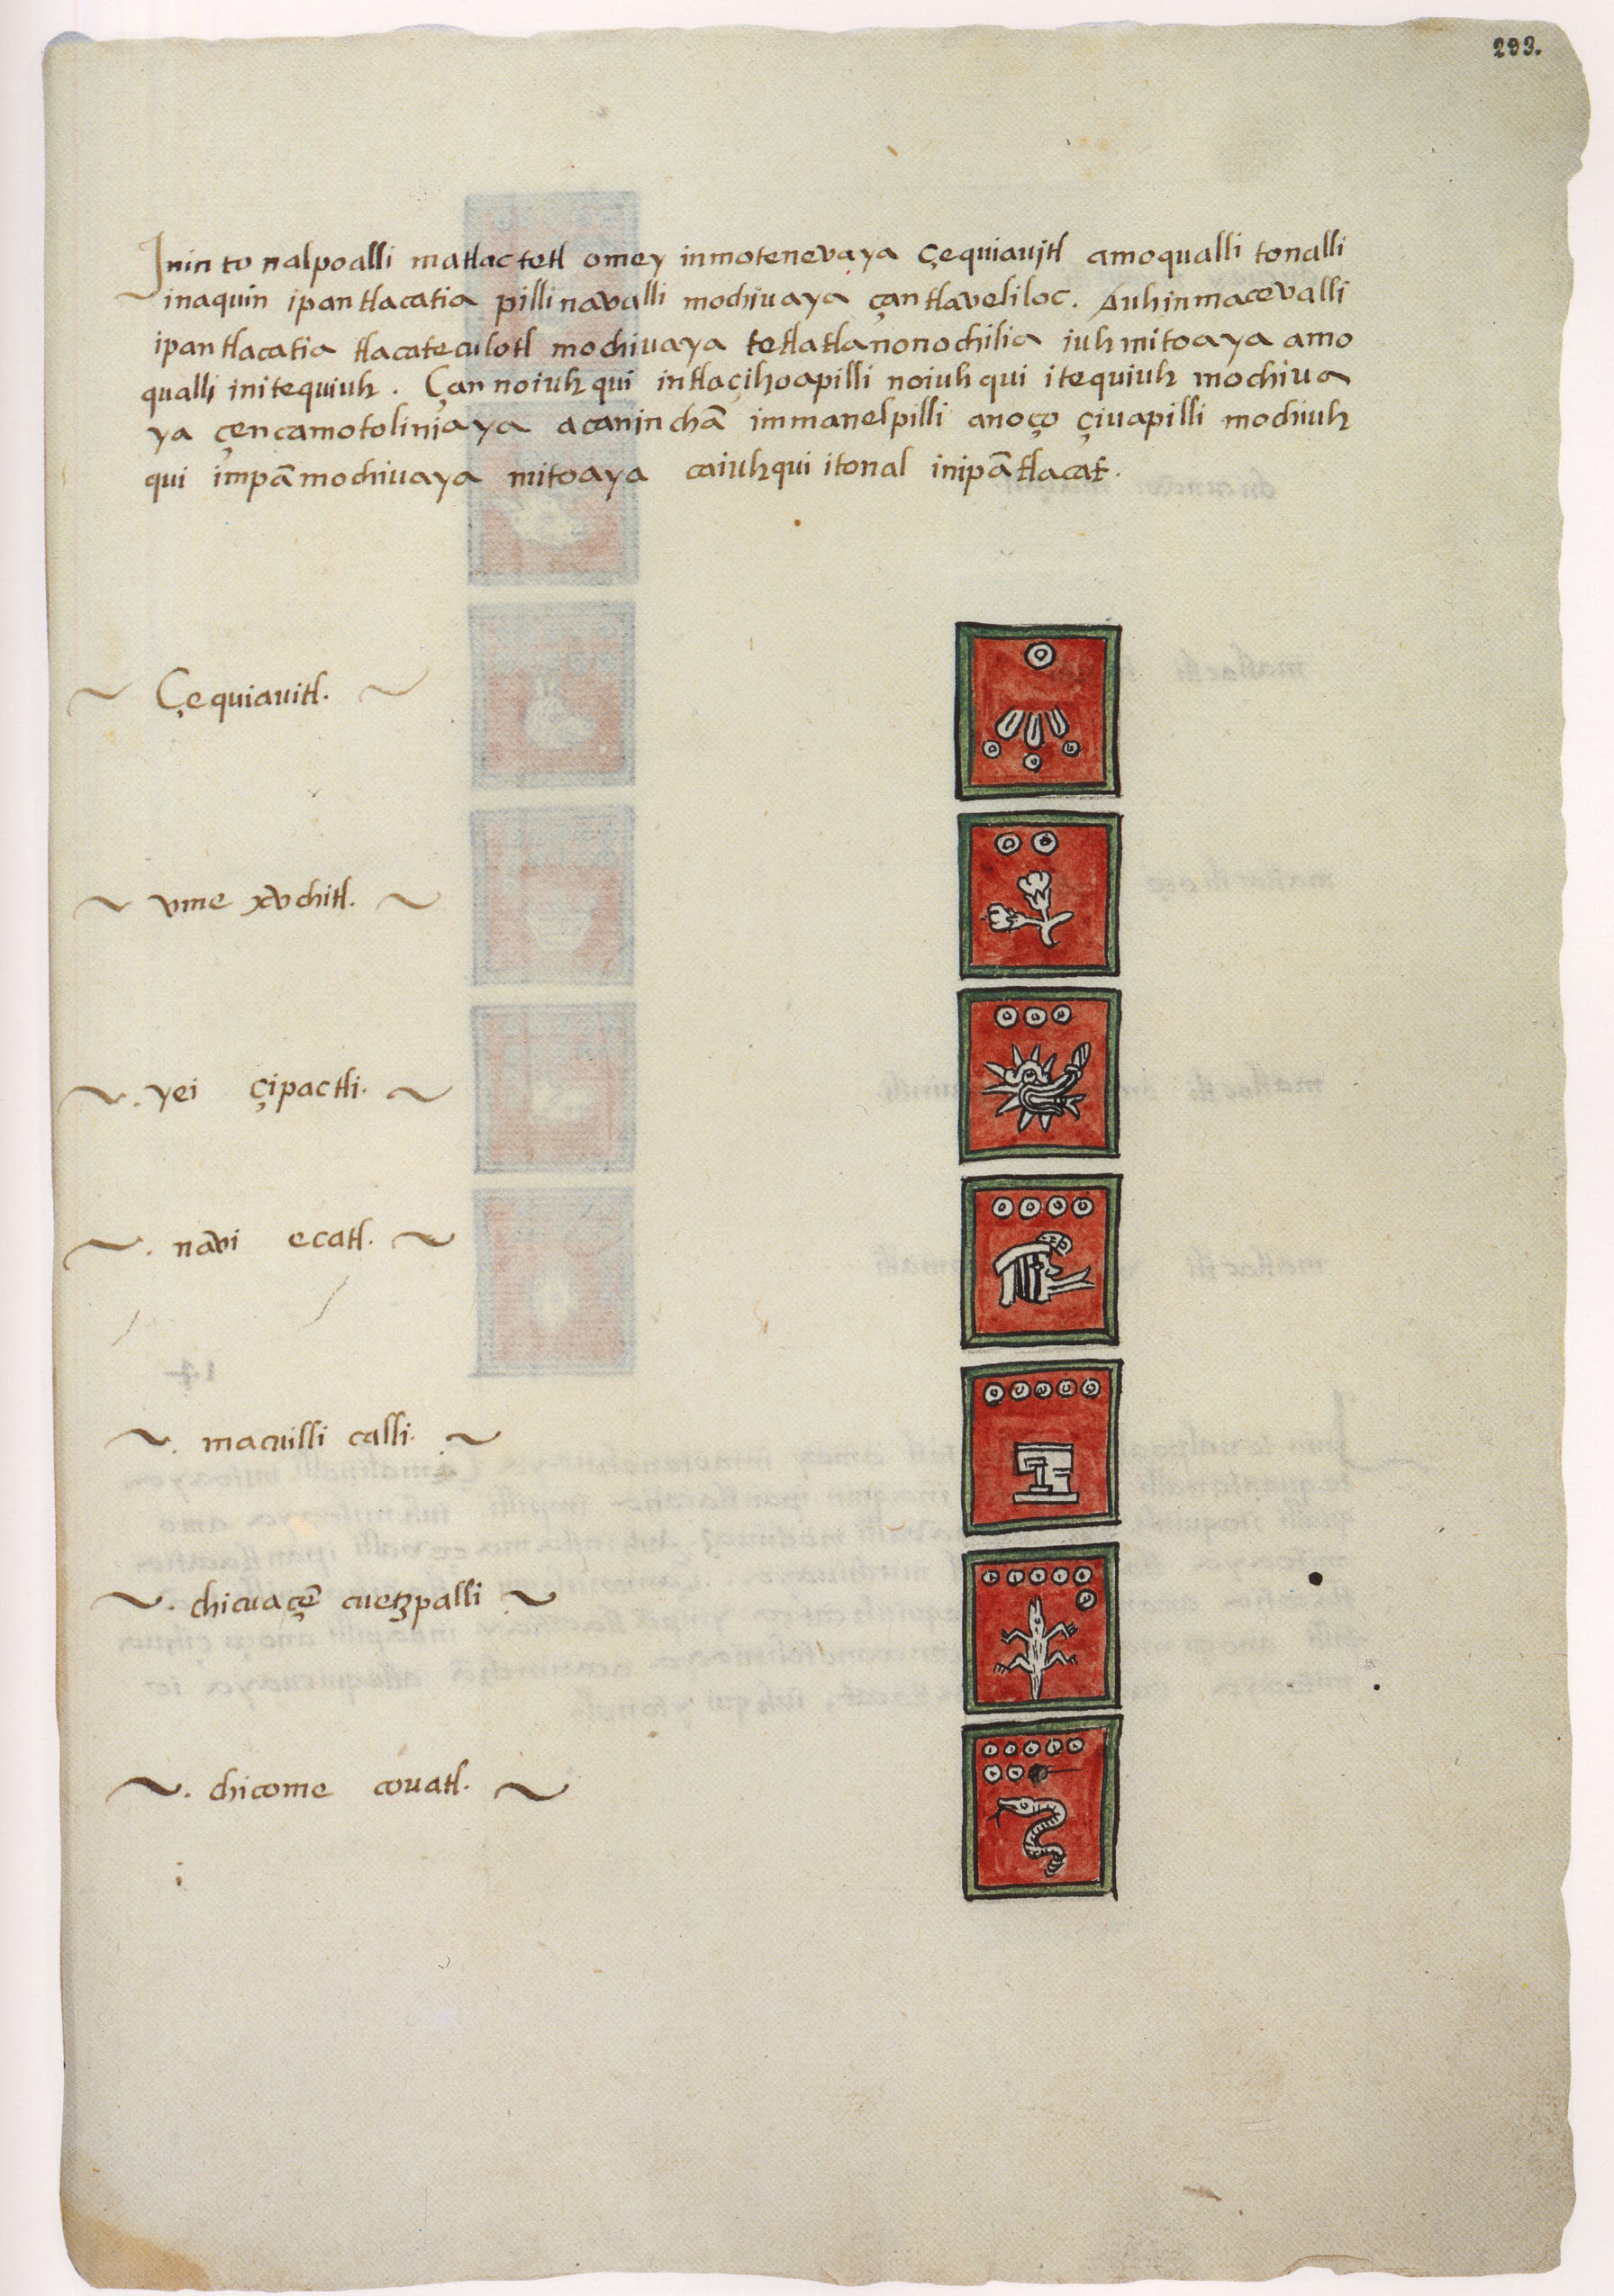 293.
Inin to nalpoalli matlactetl omey inmotenevaya çequiavitl amoqualli tonalli
inaquin ipan tlacatia pilli navalli mochivaya çan tlaveliloc. Auhinmacevalli
ipan tlacatia tlacateculotl mochivaya tetlatlanonochilia iuh mitoaya amo
qualli initequiuh. Çan noiuh qui intlaçihoapilli noiuh qui itequiuh mochiva
ya çencamotolinjaya acaninchā immanelpilli anoço çivapilli mochiuh
qui impā mochivaya mitoaya caiuhqui itonal inipā tlacat.
Çequiavitl.
vme xvchitl.
.yei çipactli.
.navi ecatl.
.macuilli calli.
.chicuaçē cuetzpalli
.chicome covatl.